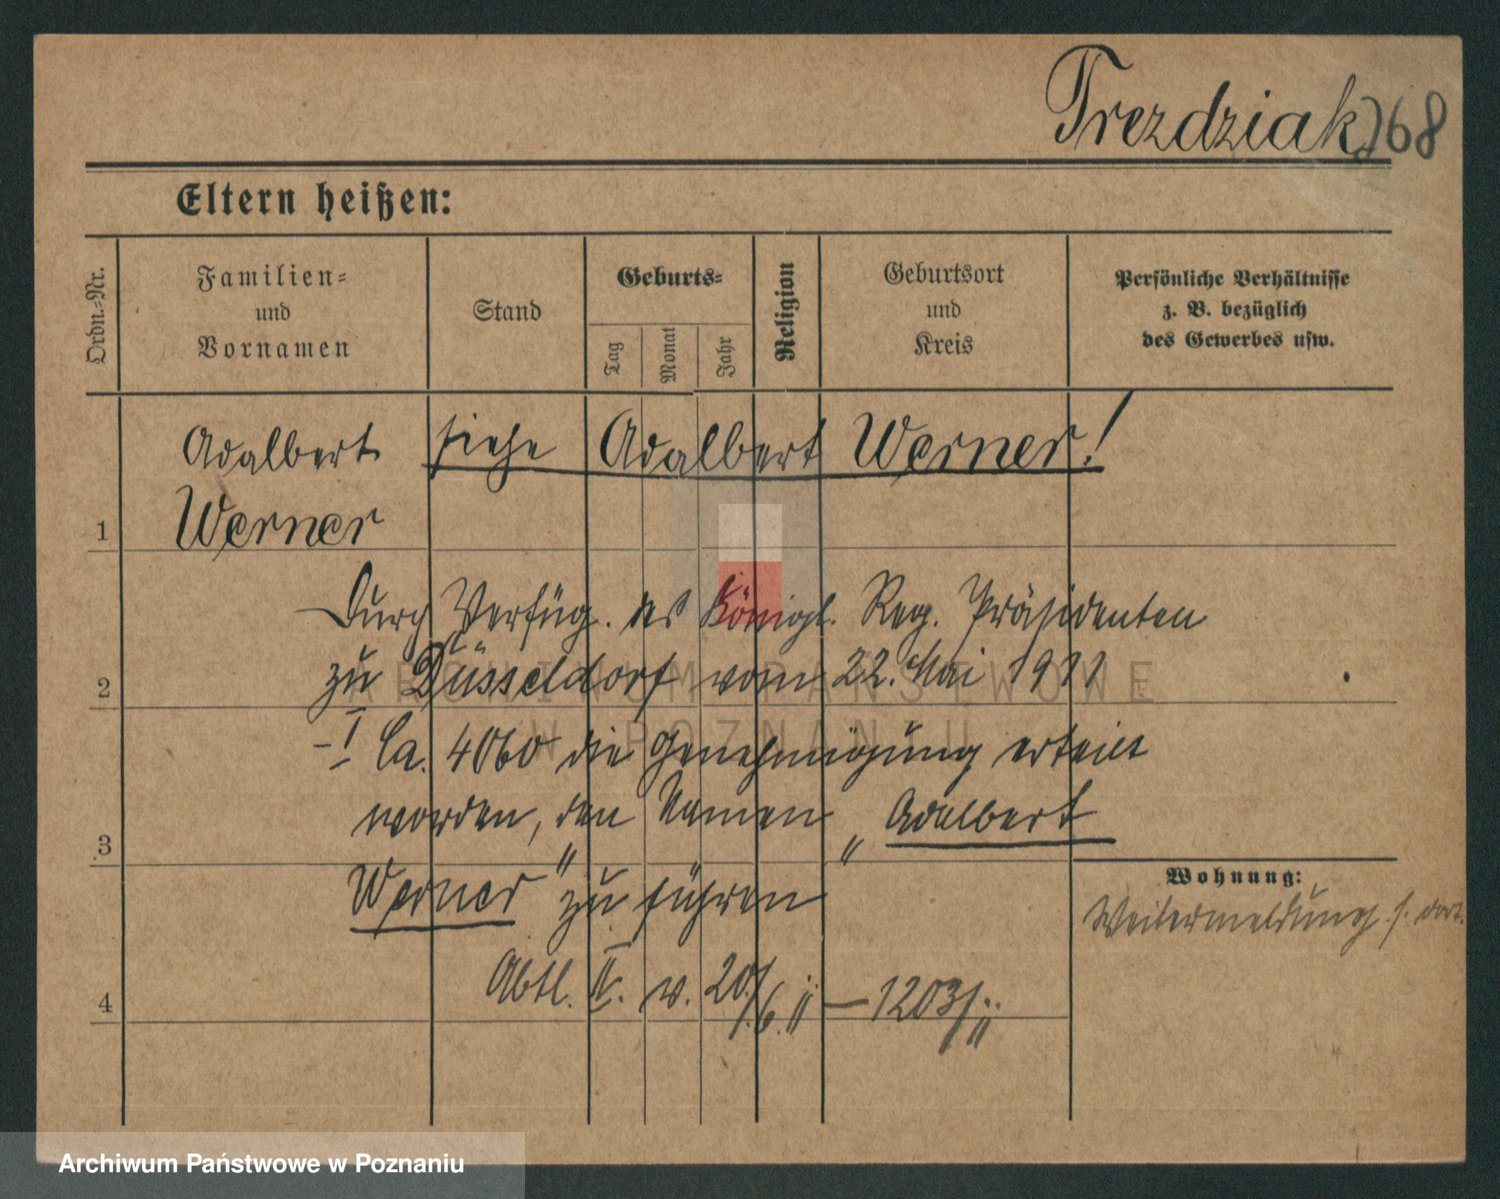 Trezdziak 268
Eltern heißen:
Ordn.-Nr.
Familien-
und
Vornamen
Stand
Geburts-
Tag
Monat
Jahr
Religion
Geburtsort
und
Kreis
Persönliche Verhältnisse
z. B. bezüglich
des Gewerbes usw.
Adalbert siehe Adalbert Werner!
1 Werner
Durch Verfüg. des Königl. Reg. Präsidenten
2 zu Düsseldorf vom 22. Mai 1911
ARCHIWUM PAŃSTWOWE
W POZNANIU
-I Ca. 4060 die Genehmigung erteilt
3 worden, den Namen „Adalbert
Werner" zu führen
Wohnung:
Weitermeldung s. dort.
4 Abtl. II. v. 20/6. 11 – 1203/11
Archiwum Państwowe w Poznaniu